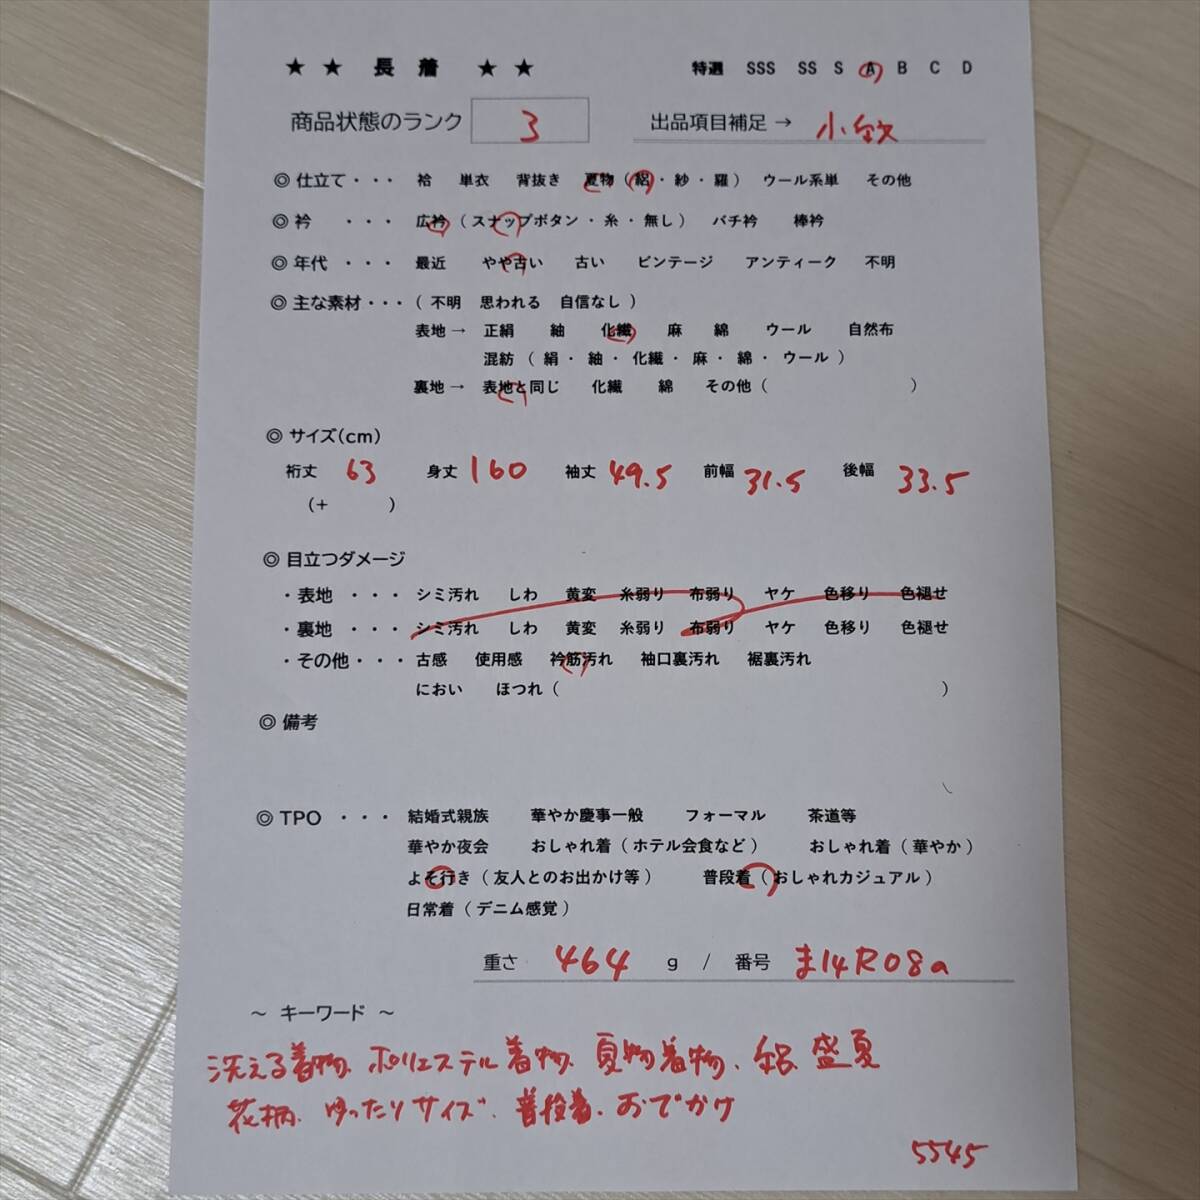 ★ ★ 長 着 ★ ★ 特選 SSS SS S A B C D
商品状態のランク 3 出品項目補足 → 小紋
◎ 仕立て・・・ 袷 単衣 背抜き 夏物（絽・紗・羅） ウール系単 その他
◎ 衿 ・・・ 広衿（スナップボタン・糸・無し） バチ衿 棒衿
◎ 年代 ・・・ 最近 やや古い 古い ビンテージ アンティーク 不明
◎ 主な素材・・・（不明 思われる 自信なし）
表地→ 正絹 紬 化繊 麻 綿 ウール 自然布
混紡（絹・紬・化繊・麻・綿・ウール）
裏地→ 表地と同じ 化繊 綿 その他（ ）
◎ サイズ(cm)
裄丈 63 身丈 160 袖丈 49.5 前幅 31.5 後幅 33.5
（+ ）
◎ 目立つダメージ
・表地 ・・・ シミ汚れ しわ 黄変 糸弱り 布弱り ヤケ 色移り 色褪せ
・裏地 ・・・ シミ汚れ しわ 黄変 糸弱り 布弱り ヤケ 色移り 色褪せ
・その他・・・ 古感 使用感 衿筋汚れ 袖口裏汚れ 裾裏汚れ
におい ほつれ（ ）
◎ 備考
◎ TPO ・・・ 結婚式親族 華やか慶事一般 フォーマル 茶道等
華やか夜会 おしゃれ着（ホテル会食など） おしゃれ着（華やか）
よそ行き（友人とのお出かけ等） 普段着（おしゃれカジュアル）
日常着（デニム感覚）
重さ 464 g / 番号 ま14R08a
～ キーワード ～
洗える着物、ポリエステル着物、夏物着物、絽、盛夏
花柄、ゆったりサイズ、普段着、おでかけ
5545